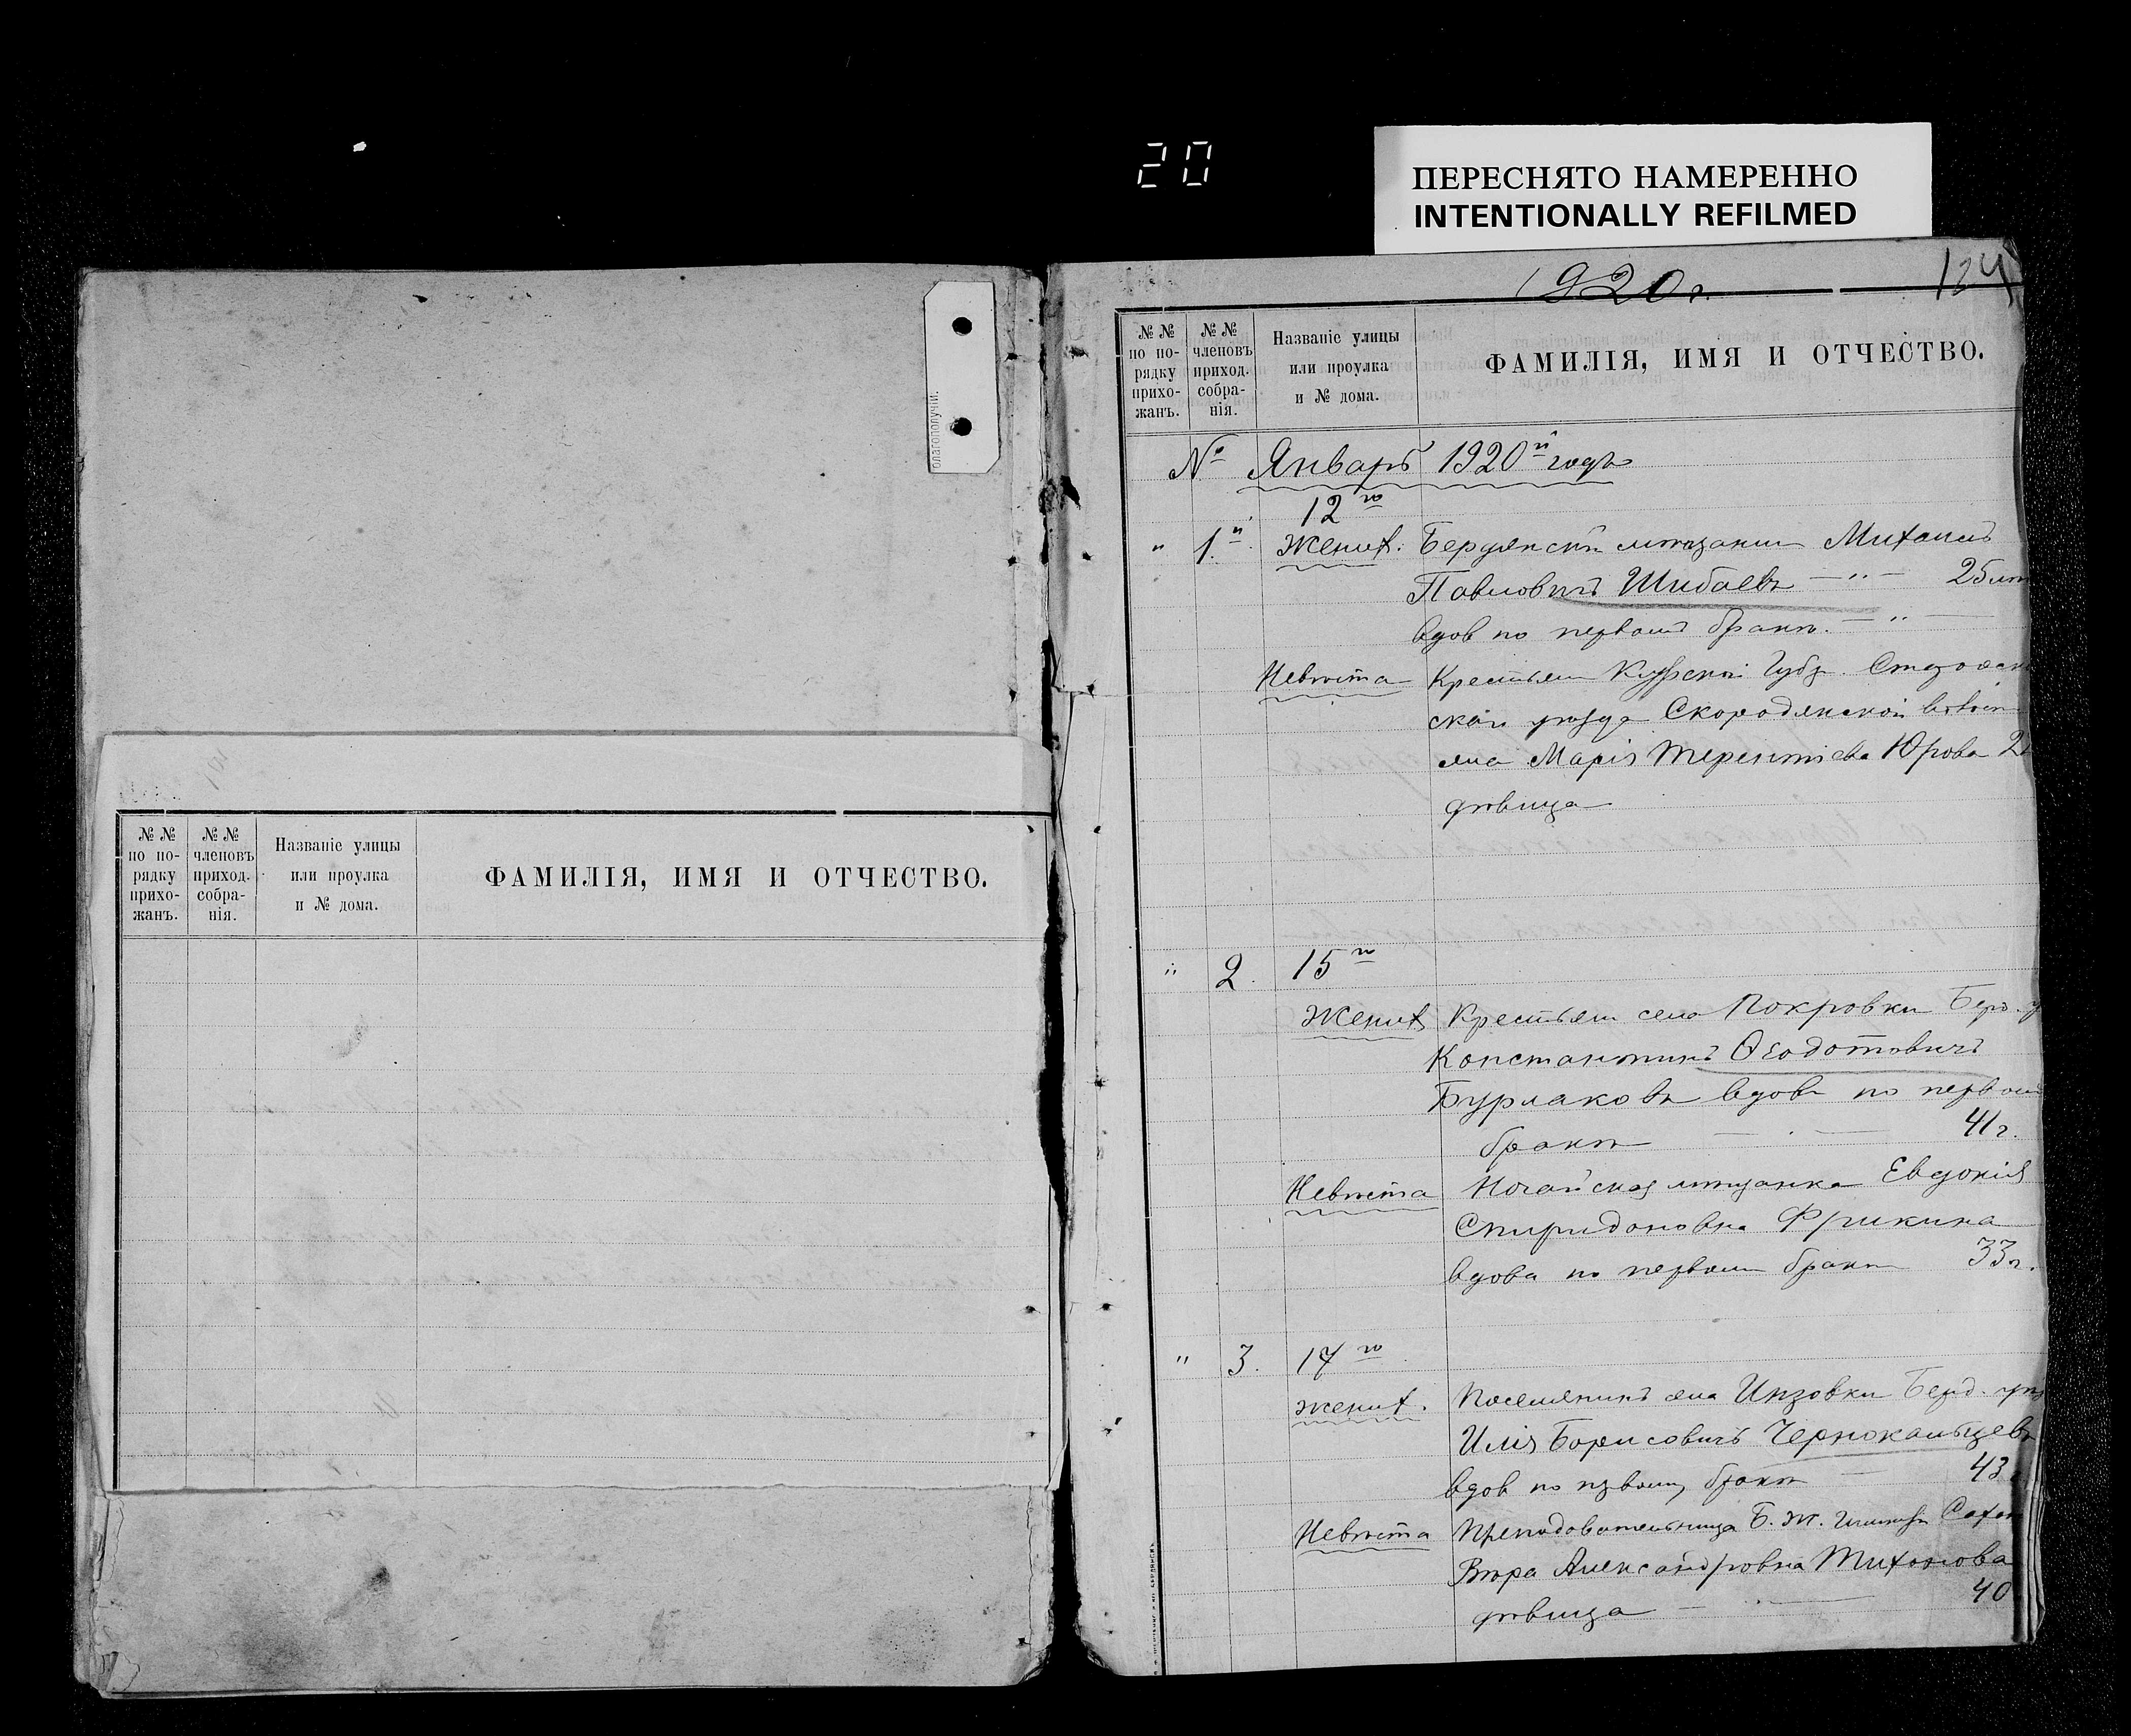 20
ПЕРЕСНЯТО НАМЕРЕННО
INTENTIONALLY REFILMED
благополучіи.
№ №
по по-
рядку
прихо-
жанъ.
№ №
членовъ
приход.
собра-
нія.
Названіе улицы
или проулка
и № дома.
ФАМИЛІЯ, ИМЯ И ОТЧЕСТВО.
1920 г.
124
№ №
по по-
рядку
прихо-
жанъ.
№ №
членовъ
приход.
собра-
нія.
Названіе улицы
или проулка
и № дома.
ФАМИЛІЯ, ИМЯ И ОТЧЕСТВО.
№ Январь 1920й годъ
12го
" 1.й Жених. Бердянскій мѣщанин Михаилъ
Павловичъ Шибаевъ — " — 25 лѣт
вдов по первомъ бракѣ. — " —
Невѣста Крестьян Курской Губ.
ской уѣзда Скородянской
ела Марія Терентіева Юрова 2
дѣвица
" 2. 15го
Жених Крестьян села Покровки Берд. у
Константинъ Ѳеодотовичъ
Бурлаковъ вдовъ по первом
бракѣ — . — 41 г.
Невѣста Ногайская мѣщанка Евдокія
Спиридоновна Фрикина
вдова по первом бракѣ 33 г.
" 3. 17го
жених. Поселянинъ села Инзовки Берд. уѣз
Илія Борисовичъ Чернокальцевъ
вдов по первому бракѣ — 43
Невѣста Преподавательница Б. Ж.
Вѣра Александровна Тихонова
дѣвица — . — 40